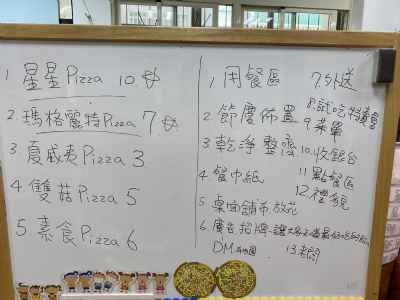 1 星星Pizza 10
2 瑪格麗特Pizza 7
3 夏威夷Pizza 3
4 雙菇Pizza 5
5 素食Pizza 6
1 用餐區
2 節慶佈置
3 乾淨整齊
4 餐巾紙
5 桌面鋪布放花
6 廣告招牌
DM
7 外送
8 試吃特賣會
9 菜單
10 收銀台
11 點餐區
12 禮貌
13